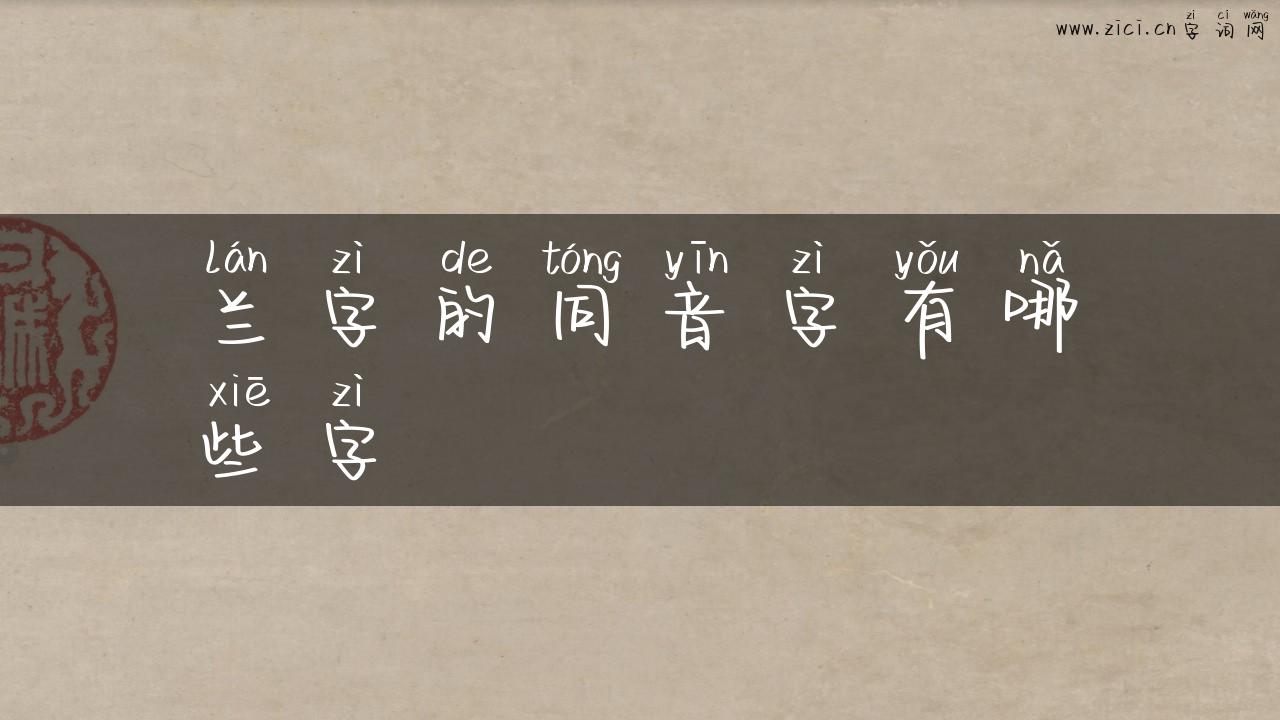 zì cí wǎng
www.zici.cn 字 词 网
lán zì de tóng yīn zì yǒu nǎ
兰 字 的 同 音 字 有 哪
xiē zì
些 字